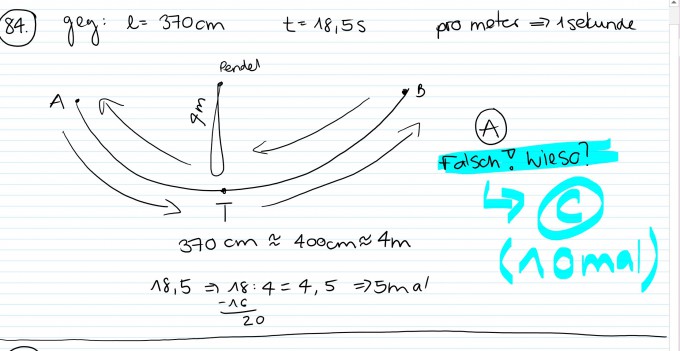 84. geg: l = 370cm t = 18,5s pro meter ⇒ 1 sekunde
Pendel
A
B
4m
T
A
Falsch? Wieso?
↳ C
(10mal)
370 cm ≈ 400cm ≈ 4m
18,5 ⇒ 18:4 = 4,5 ⇒ 5mal
-16
20